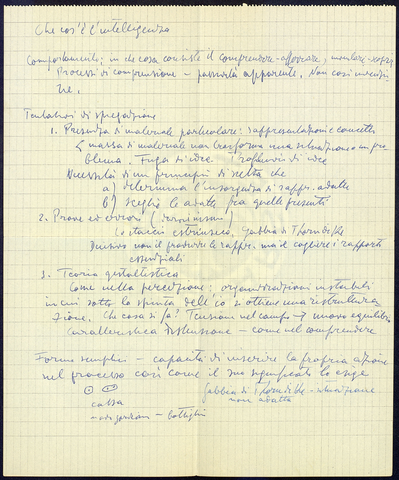 Che cos'è l'intelligenza
Comportamenti; in che cosa consiste il comprendere - afferrare,
Processi di comprensione – passività apparente. Non così
tre.
Tentativi di spiegazione
1. Presenza di materiale particolare: rappresentazioni e concetti
massa di materiale non trasforma una situazione in pro
blema. Fuga di idee. Profluvii di idee
Necessità di un principio di scelta che
a) determina l'insorgenza di rappr. adatte
b) sceglie le adatte fra quelle presenti
2. Prove ed errori (
estrinseco, Gabbia di Thorndike
Decisivo non il produrre le rappr. ma il cogliere i rapporti
essenziali
3. Teoria gestaltistica
Come nella percezione: organizzazioni instabili
in cui sotto la spinta dell'io si ottiene una ristruttura
zione. Che cosa si fa? Tensione nel campo → nuovo equilibrio
Caratteristica distensione – come nel comprendere
Forme semplici – capacità di inserire la propria azione
nel processo così come il suo significato lo esige
Gabbia di Thorndike - situazione
non adatta
cassa
bottiglia